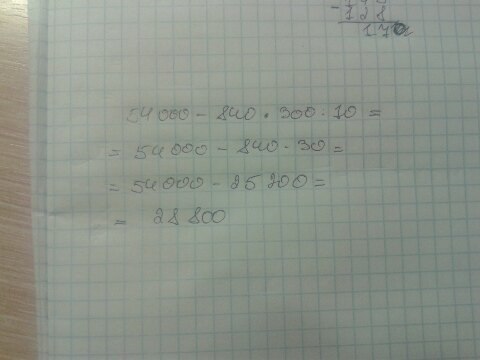 - 128
17
54000 - 840 · 300 · 10 =
= 54000 - 840 · 30 =
= 54000 - 25 200 =
= 28 800